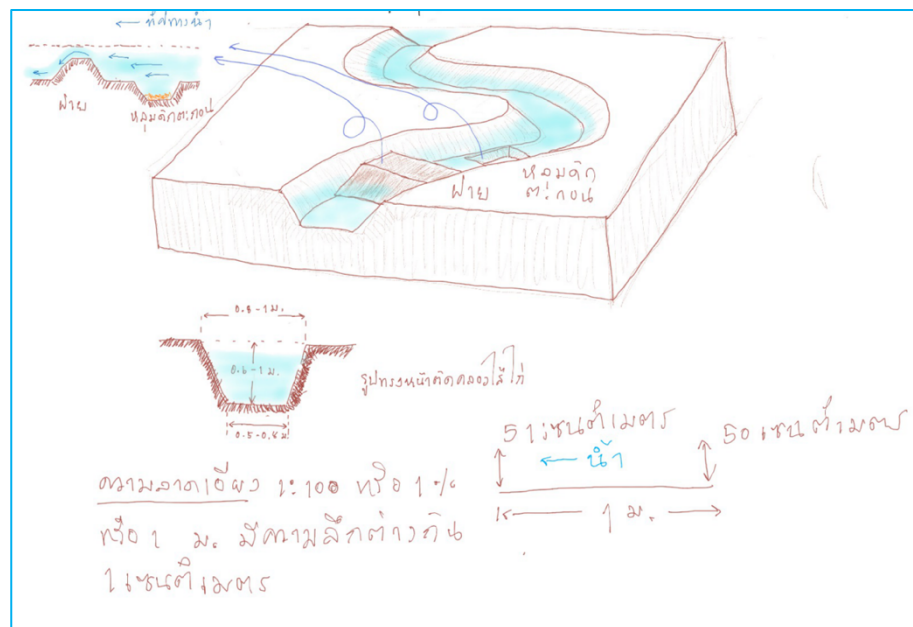 ← ทิศทางน้ำ
ฝาย
หลุมดักตะกอน
ฝาย
หลุมดัก
ตะกอน
0.8-1 ม.
0.6-1 ม.
0.5-0.8 ม
รูปทรงหน้าตัดคลองไส้ไก่
51 เซนติเมตร
50 เซนติเมตร
← น้ำ
1 ม.
ความลาดเอียง 1:100 หรือ 1 %
หรือ 1 ม. มีความลึกต่างกัน
1 เซนติเมตร